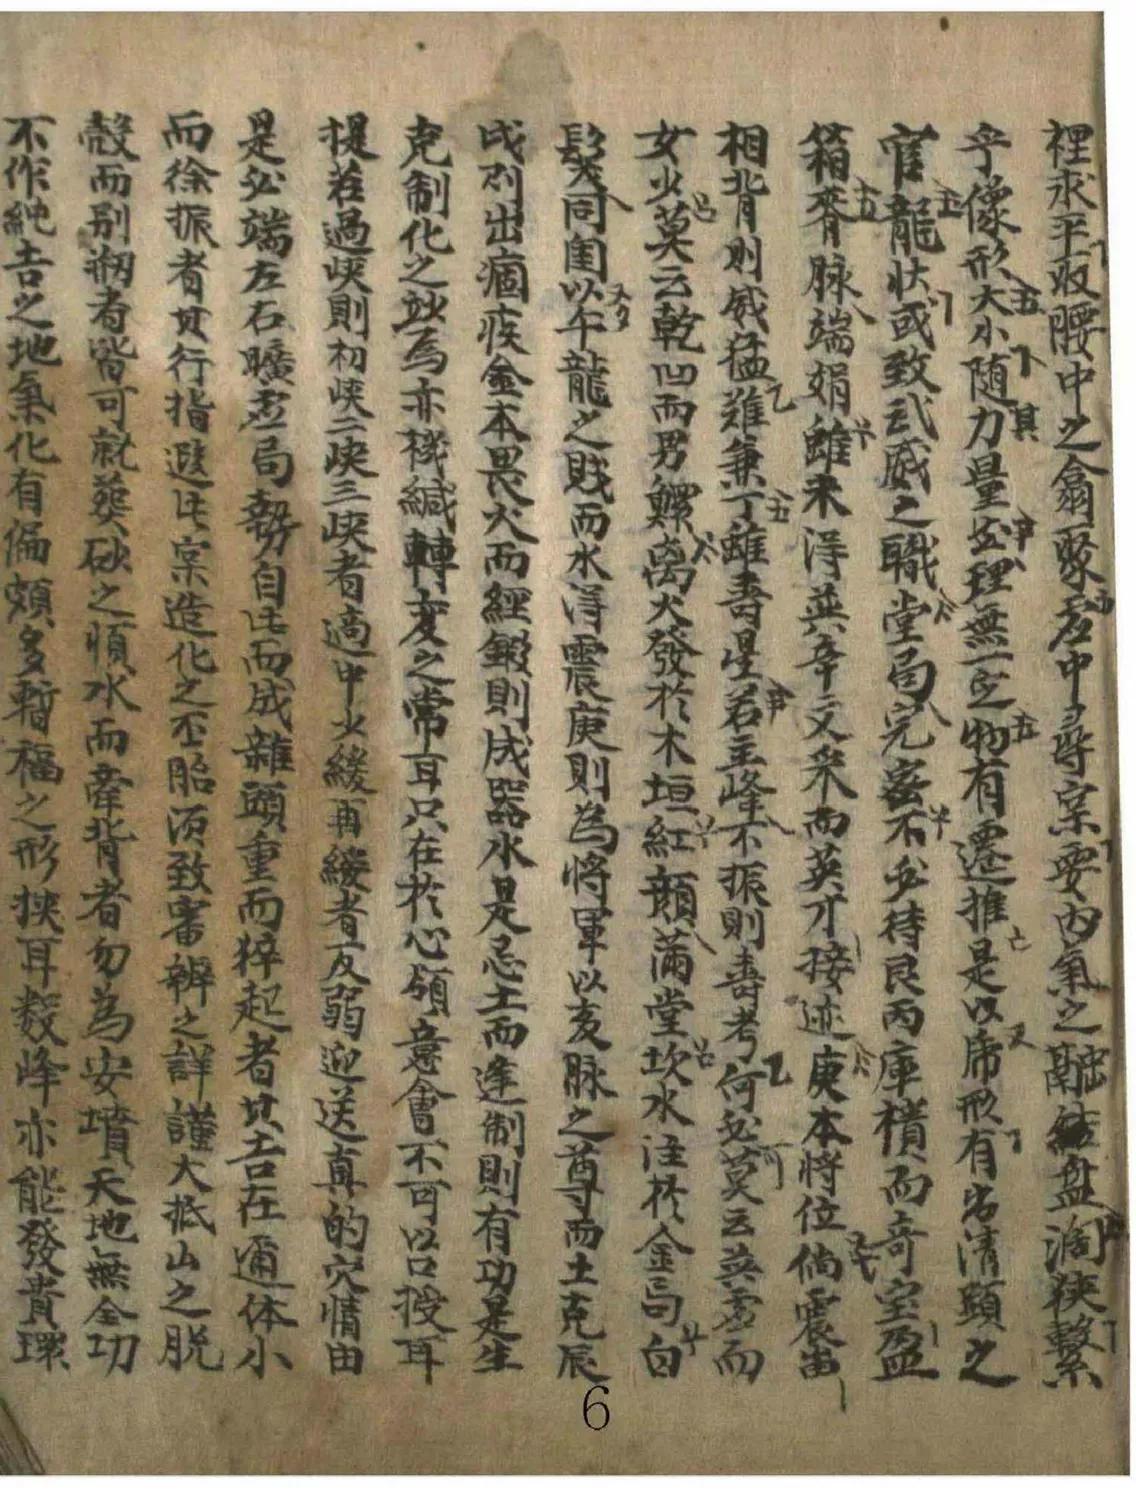 裡求平收腰中之翕聚巹中尋穴要內氣之融結盆濶狹繫
乎像形大小随力量玆理無一之物有遷推是以席形有名清頭之
官龍状或致武威之職堂局完密不必待艮丙庫横而竒宝盈
箱脊脉端娟雖未淂巽辛文釆而英才接迹庚本將位倘震
相背則威猛難兼丁雖壽星若主峰不振則壽考何必莫云巽虚而
女少莫云乾凹而男鰥离火發於木垣紅顔滿堂坎水注於金局白
髮同閨以午龍之賎而水淂震庚則為將軍以亥脉之尊而土克辰
戌則出痼疾金本畏火而經鍛則成噐水是忌土而逢制則有功是生
克制化之妙焉亦機緘轉变之常耳只在於心領意會不可以口授耳
提若過峽則初峽二峽三峽者適中少綾再綾者反弱迎送真的穴情由
是必端左右曠虚局勢自佳而成雜頭重而猝起者其吉在逦体小
而徐振者其行指遐佳案造化之丕胎湏致審辨之詳謹大抵山之脱
殼而别刱者皆可就葬砂之順水而牽背者勿為安墳天地無全功
不作純吉之地氣化有偏頗多暫福之形狹耳數峰亦能發貴環
6